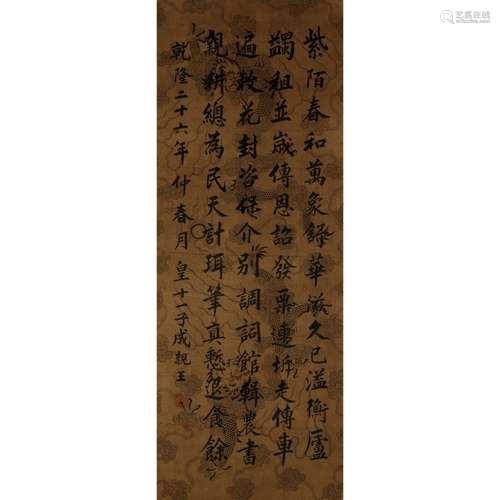 紫陌春和萬象舒華滋久已溢衡廬
蠲租並歲傳恩詔發粟連圻走傳車
遍敕花封咨保介別調詞館輯農書
親耕總為民天計珥筆真慙退食餘
乾隆二十六年仲春月皇十一子成親王
艺狐在线